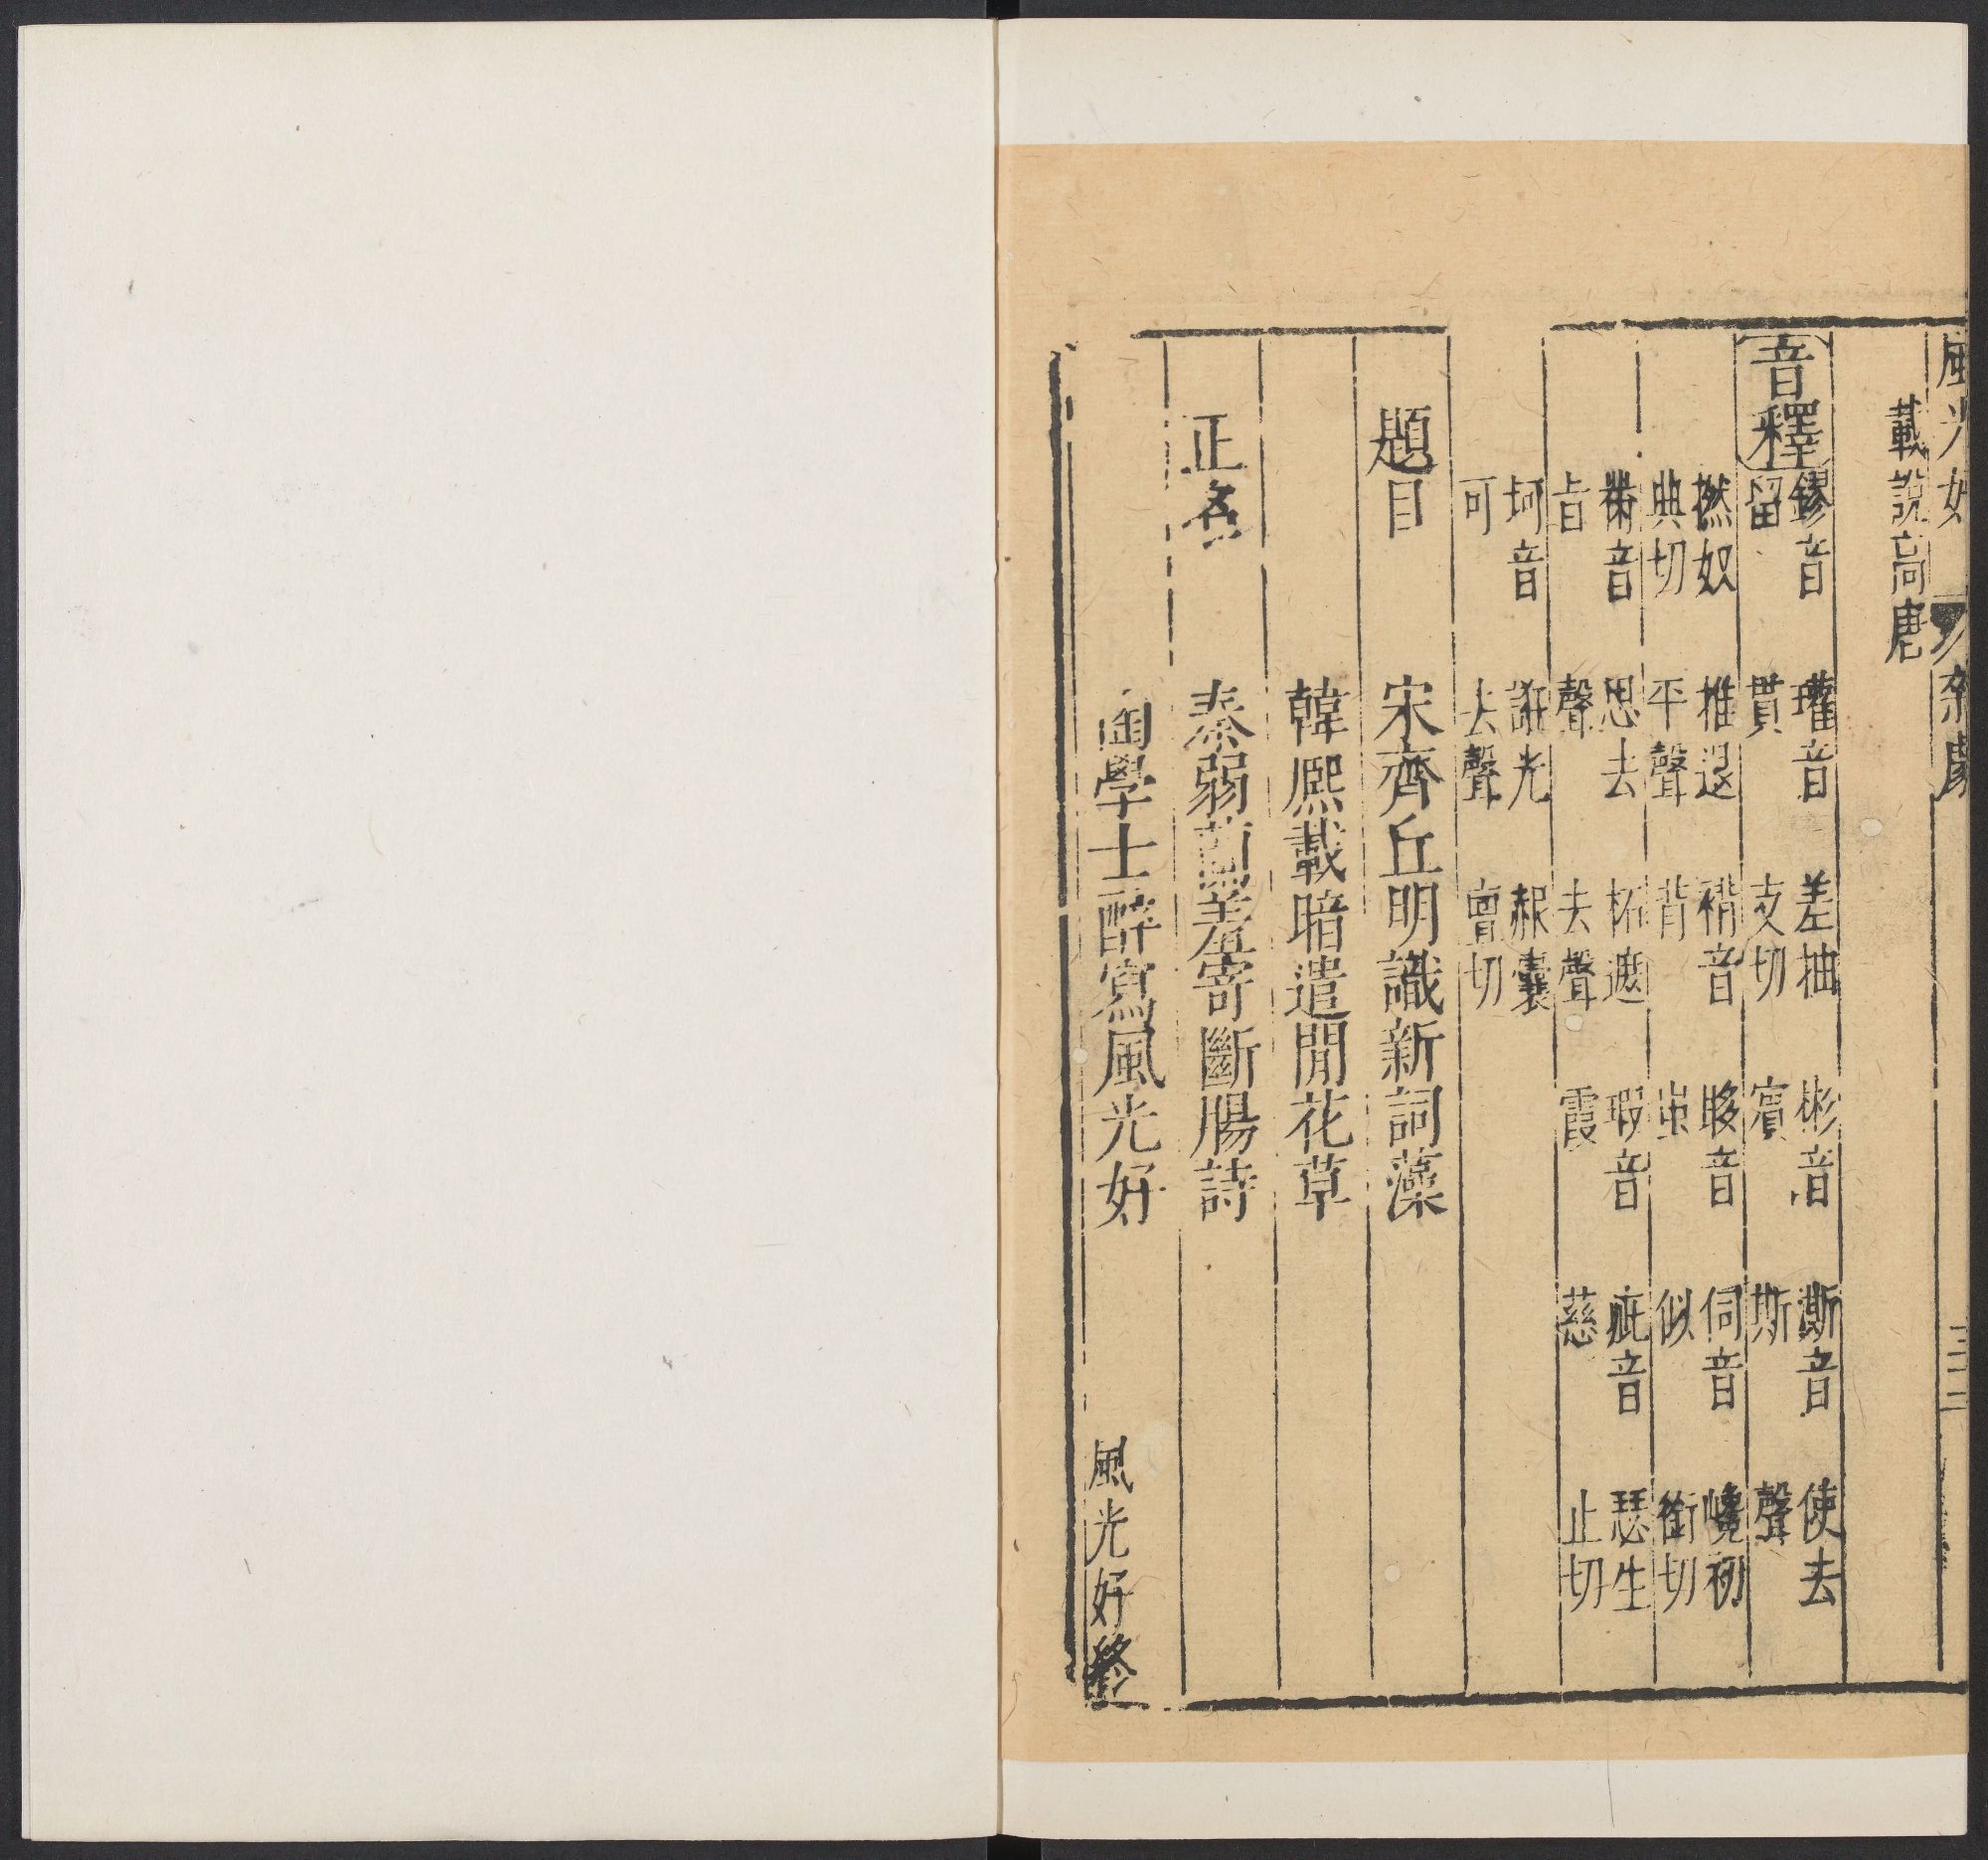 風光好 雜劇 三二
載說高唐
音釋 鏐音留 瓘音貫 差抽支切 彬音賓 澌音斯 使去聲
撚奴典切 推退平聲 褙音背 眵音蚩 伺音似 巉初銜切
黹音旨 思去聲 柘遮去聲 瑕音霞 疵音慈 瑟生止切
坷音可 誑光去聲 赧囊曾切
題目 宋齊丘明識新詞藻
韓熙載暗遣閒花草
正名 秦弱蘭羞寄斷腸詩
陶學士醉寫風光好
風光好終